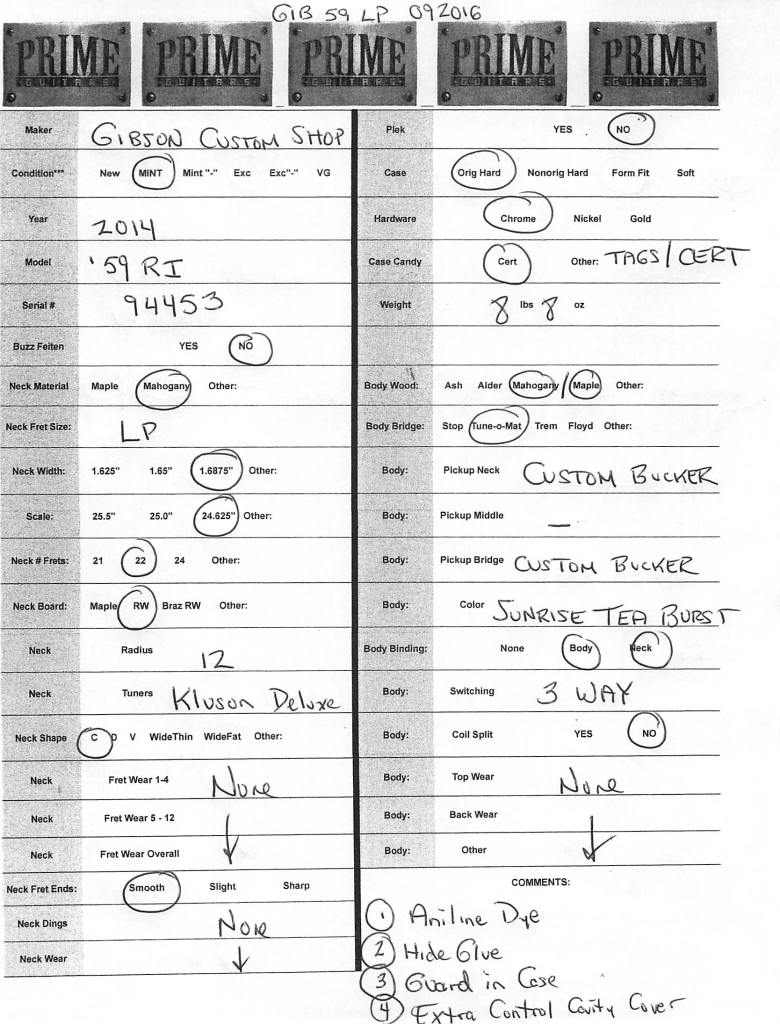 GIB 59 LP 092016
PRIME GUITARS PRIME GUITARS PRIME GUITARS PRIME GUITARS PRIME GUITARS
Maker GIBSON CUSTOM SHOP
Condition*** New MINT Mint "-" Exc Exc"-" VG
Year 2014
Model '59 RI
Serial # 94453
Buzz Feiten YES NO
Neck Material Maple Mahogany Other:
Neck Fret Size: LP
Neck Width: 1.625" 1.65" 1.6875" Other:
Scale: 25.5" 25.0" 24.625" Other:
Neck # Frets: 21 22 24 Other:
Neck Board: Maple RW Braz RW Other:
Neck Radius 12
Neck Tuners Kluson Deluxe
Neck Shape C D V WideThin WideFat Other:
Neck Fret Wear 1-4 None
Neck Fret Wear 5 - 12
Neck Fret Wear Overall
Neck Fret Ends: Smooth Slight Sharp
Neck Dings None
Neck Wear
Plek YES NO
Case Orig Hard Nonorig Hard Form Fit Soft
Hardware Chrome Nickel Gold
Case Candy Cert Other: TAGS/CERT
Weight 8 lbs 8 oz
Body Wood: Ash Alder Mahogany / Maple Other:
Body Bridge: Stop Tune-o-Mat Trem Floyd Other:
Body: Pickup Neck CUSTOM BUCKER
Body: Pickup Middle —
Body: Pickup Bridge CUSTOM BUCKER
Body: Color SUNRISE TEA BURST
Body Binding: None Body Neck
Body: Switching 3 WAY
Body: Coil Split YES NO
Body: Top Wear None
Body: Back Wear
Body: Other
COMMENTS:
1 Aniline Dye
2 Hide Glue
3 Guard in Case
4 Extra Control Cavity Cover